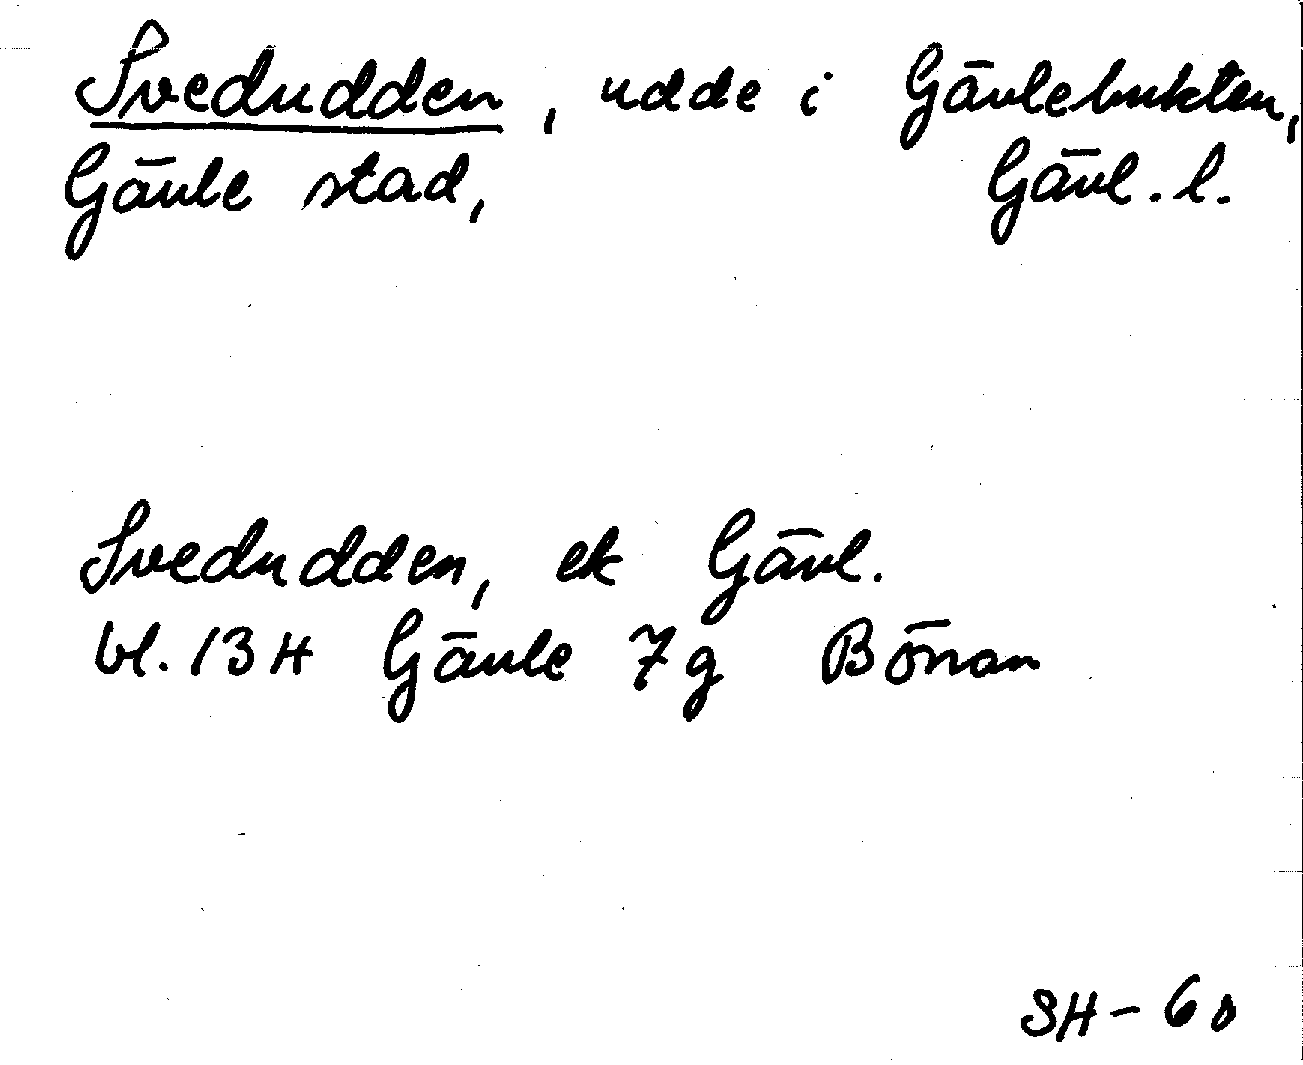 Svedudden, udde i Gävlebukten,
Gävle stad, Gävl. l.
Svedudden, ek Gävl.
bl. 13H Gävle 7g Bönan
SH-60